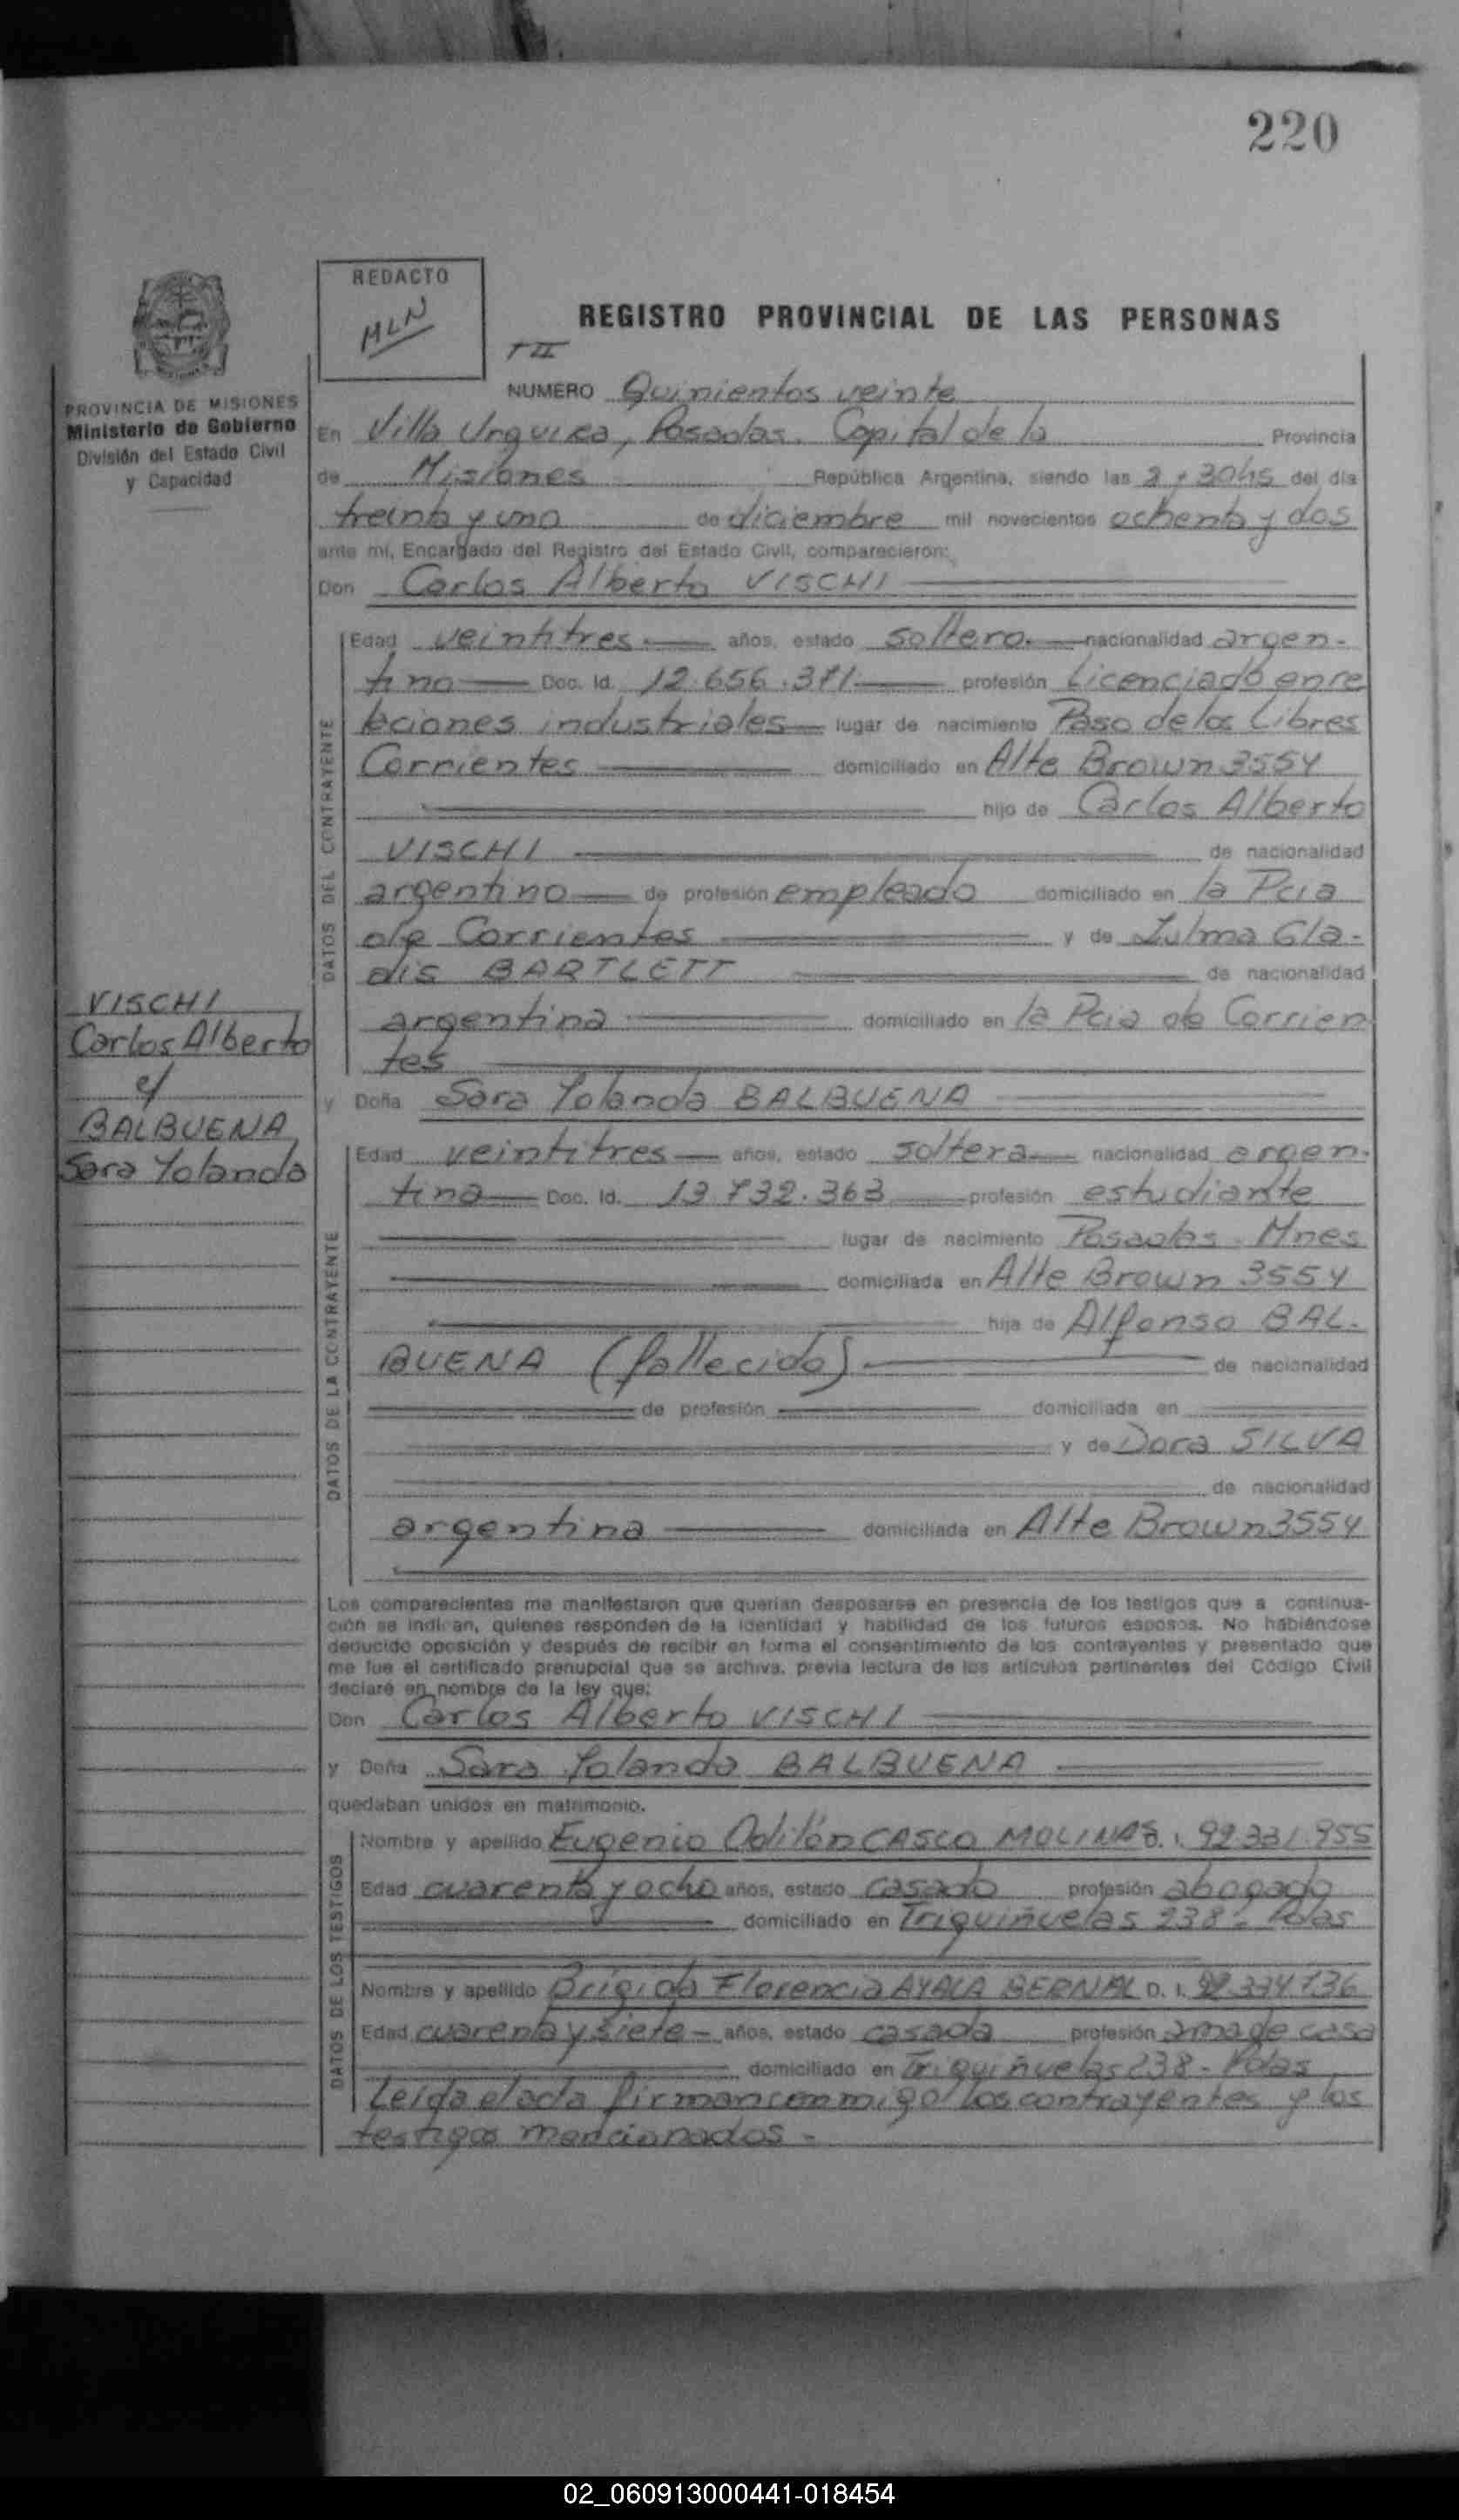 220
REDACTO
MLN
REGISTRO PROVINCIAL DE LAS PERSONAS
T II
NUMERO Quinientos veinte
PROVINCIA DE MISIONES
Ministerio de Gobierno
División del Estado Civil
y Capacidad
En Villa Urquiza, Posadas. Capital de la Provincia
de Misiones República Argentina, siendo las 8 y 30 hs del día
treinta y uno de diciembre mil novecientos ochenta y dos
ante mí, Encargado del Registro del Estado Civil, comparecieron:
Don Carlos Alberto VISCHI
DATOS DEL CONTRAYENTE
Edad veintitres.— años, estado soltero.— nacionalidad argen-
tino— Doc. Id. 12.656.371.— profesión Licenciado en re
laciones industriales— lugar de nacimiento Paso de los Libres
Corrientes — domiciliado en Alte Brown 3554
hijo de Carlos Alberto
VISCHI de nacionalidad
argentino— de profesión empleado domiciliado en la Pcia
de Corrientes y de Zulma Gla-
dis BARTLETT de nacionalidad
argentina domiciliado en la Pcia de Corrien
tes
VISCHI
Carlos Alberto
c/
BALBUENA
Sara Yolanda
y Doña Sara Yolanda BALBUENA
DATOS DE LA CONTRAYENTE
Edad veintitres— años, estado soltera— nacionalidad argen-
tina— Doc. Id. 13.732.363 — profesión estudiante
lugar de nacimiento Posadas - Mnes
domiciliada en Alte Brown 3554
hija de Alfonso BAL-
BUENA (fallecido) de nacionalidad
de profesión domiciliada en
y de Dora SILVA
de nacionalidad
argentina domiciliada en Alte Brown 3554
Los comparecientes me manifestaron que querían desposarse en presencia de los testigos que a continua-
ción se indican, quienes responden de la identidad y habilidad de los futuros esposos. No habiéndose
deducido oposición y después de recibir en forma el consentimiento de los contrayentes y presentado que
me fue el certificado prenupcial que se archiva, previa lectura de los artículos pertinentes del Código Civil
declaré en nombre de la ley que:
Don Carlos Alberto VISCHI
y Doña Sara Yolanda BALBUENA
quedaban unidos en matrimonio.
DATOS DE LOS TESTIGOS
Nombre y apellido Eugenio Odilón CASCO MOLINAS. I. 92.331.955
Edad cuarenta y ocho años, estado casado profesión abogado
domiciliado en Triquiñuelas 238 - Pdas
Nombre y apellido Brigida Florencia AYALA BERNAL D. I. 92.334.136
Edad cuarenta y siete - años, estado casada profesión ama de casa
domiciliado en Triquiñuelas 238 - Pdas
Leída el acta firman conmigo los contrayentes y los
testigos mencionados -
02_060913000441-018454